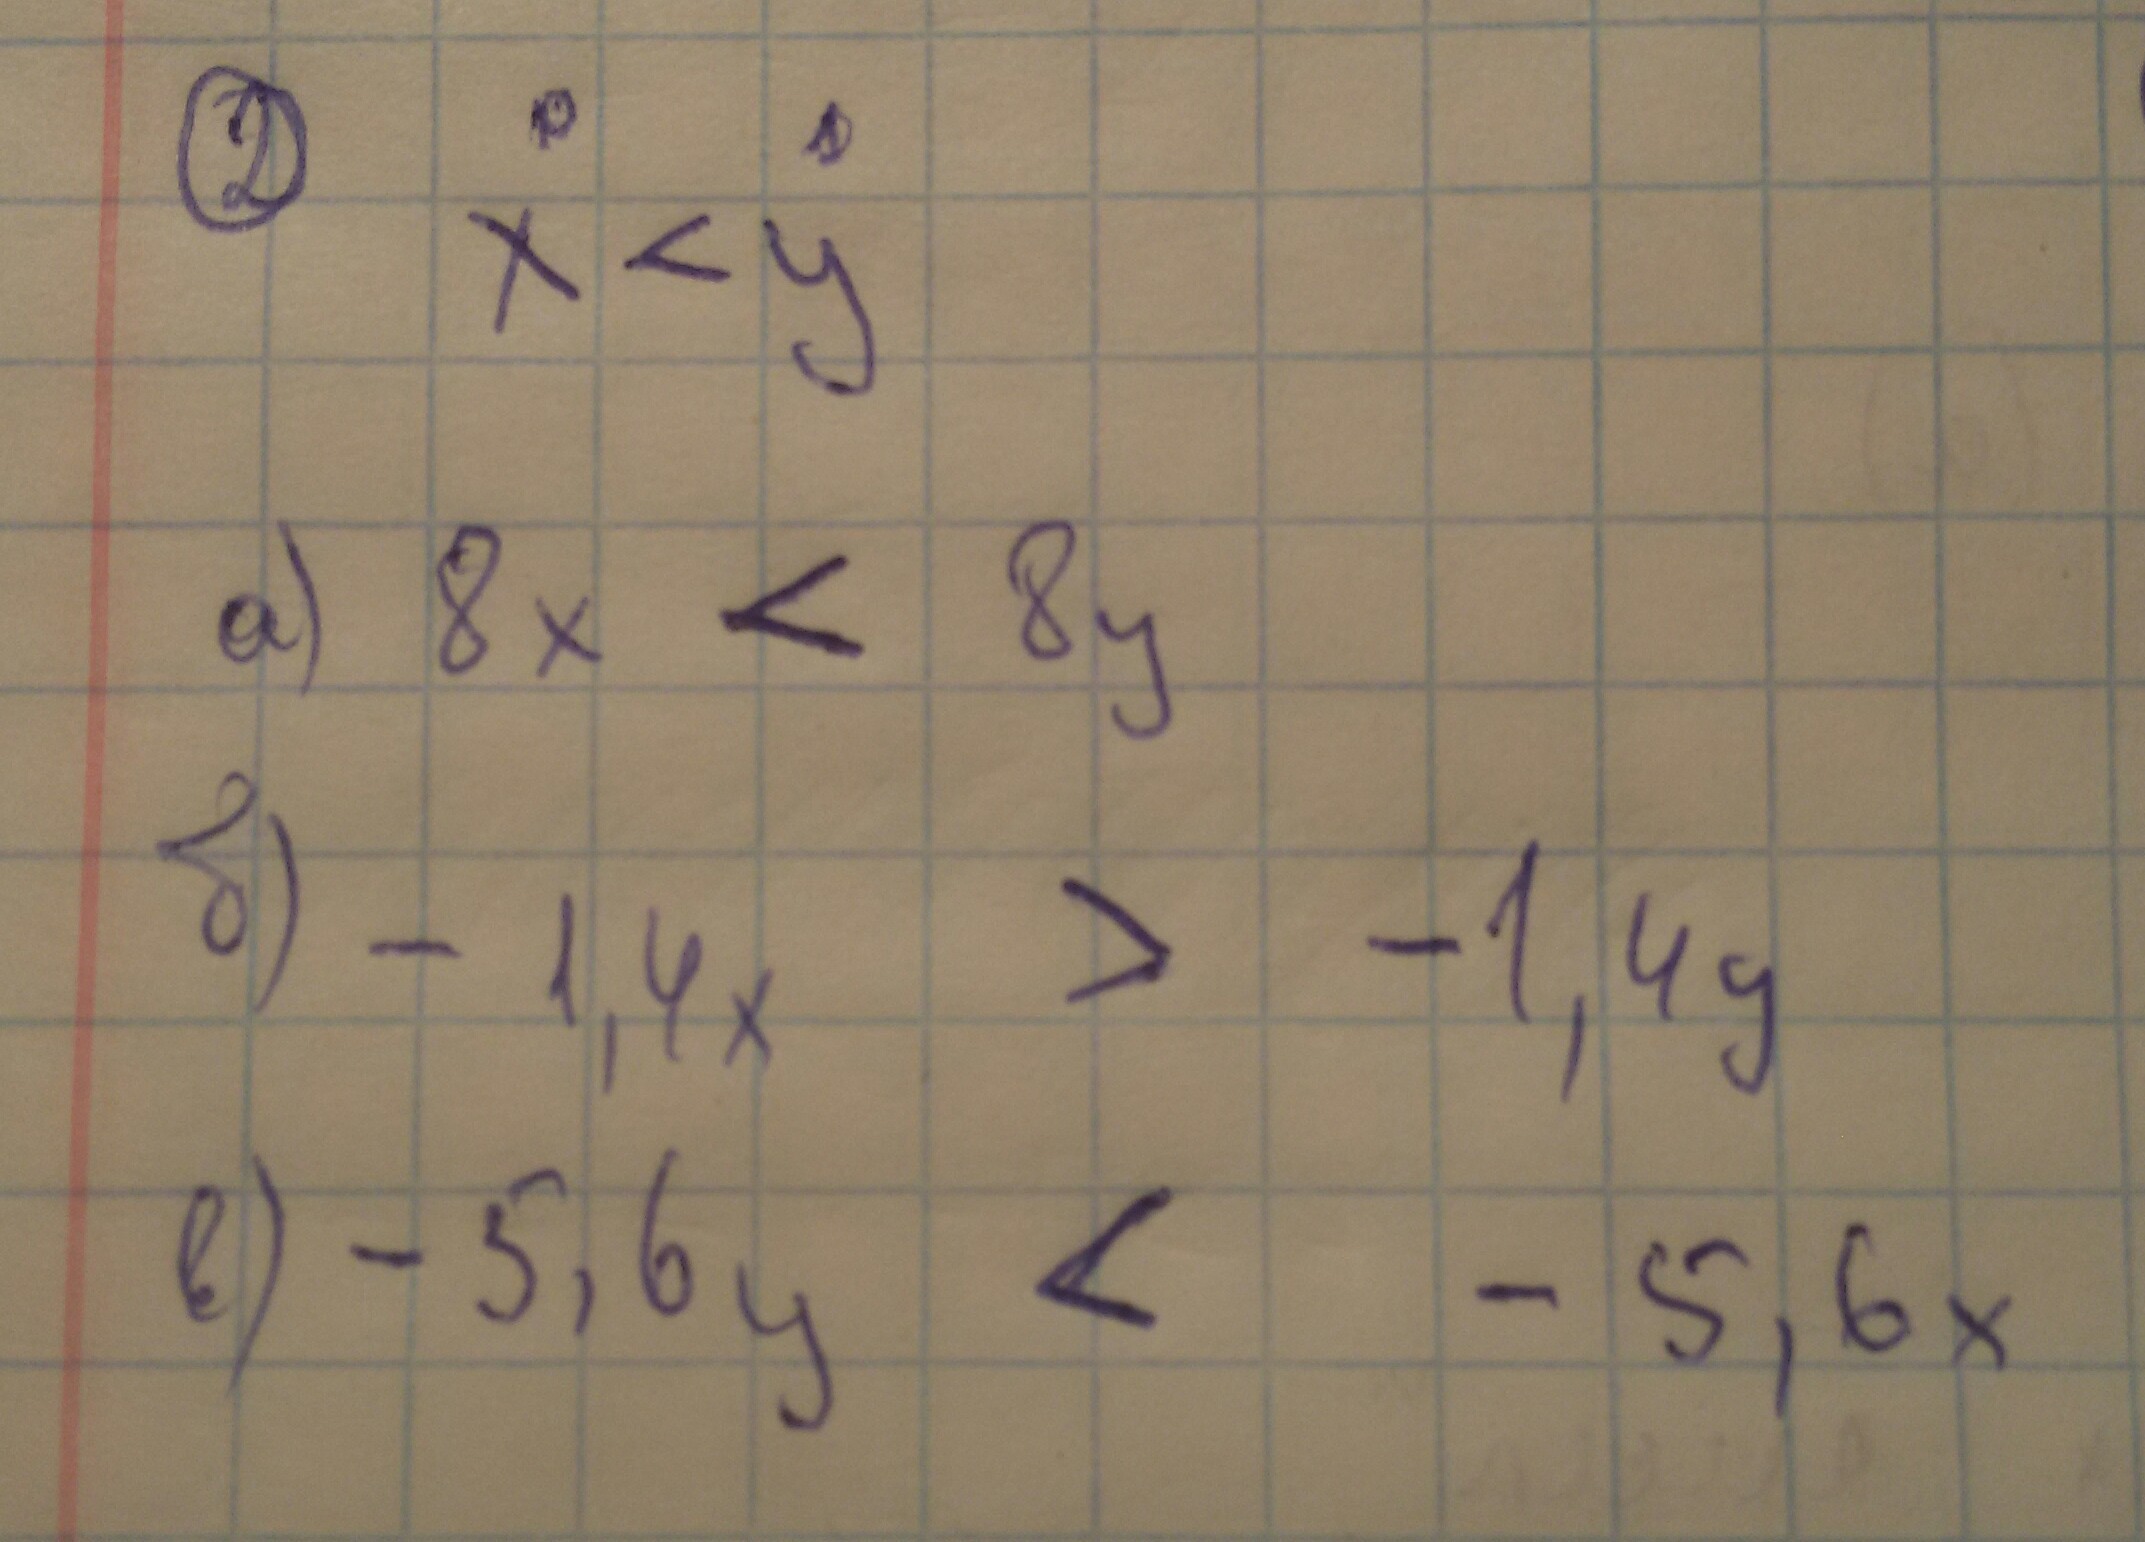 2
x < y
а) 8x < 8y
б) - 1,4x > -1,4y
в) - 5,6y < - 5,6x